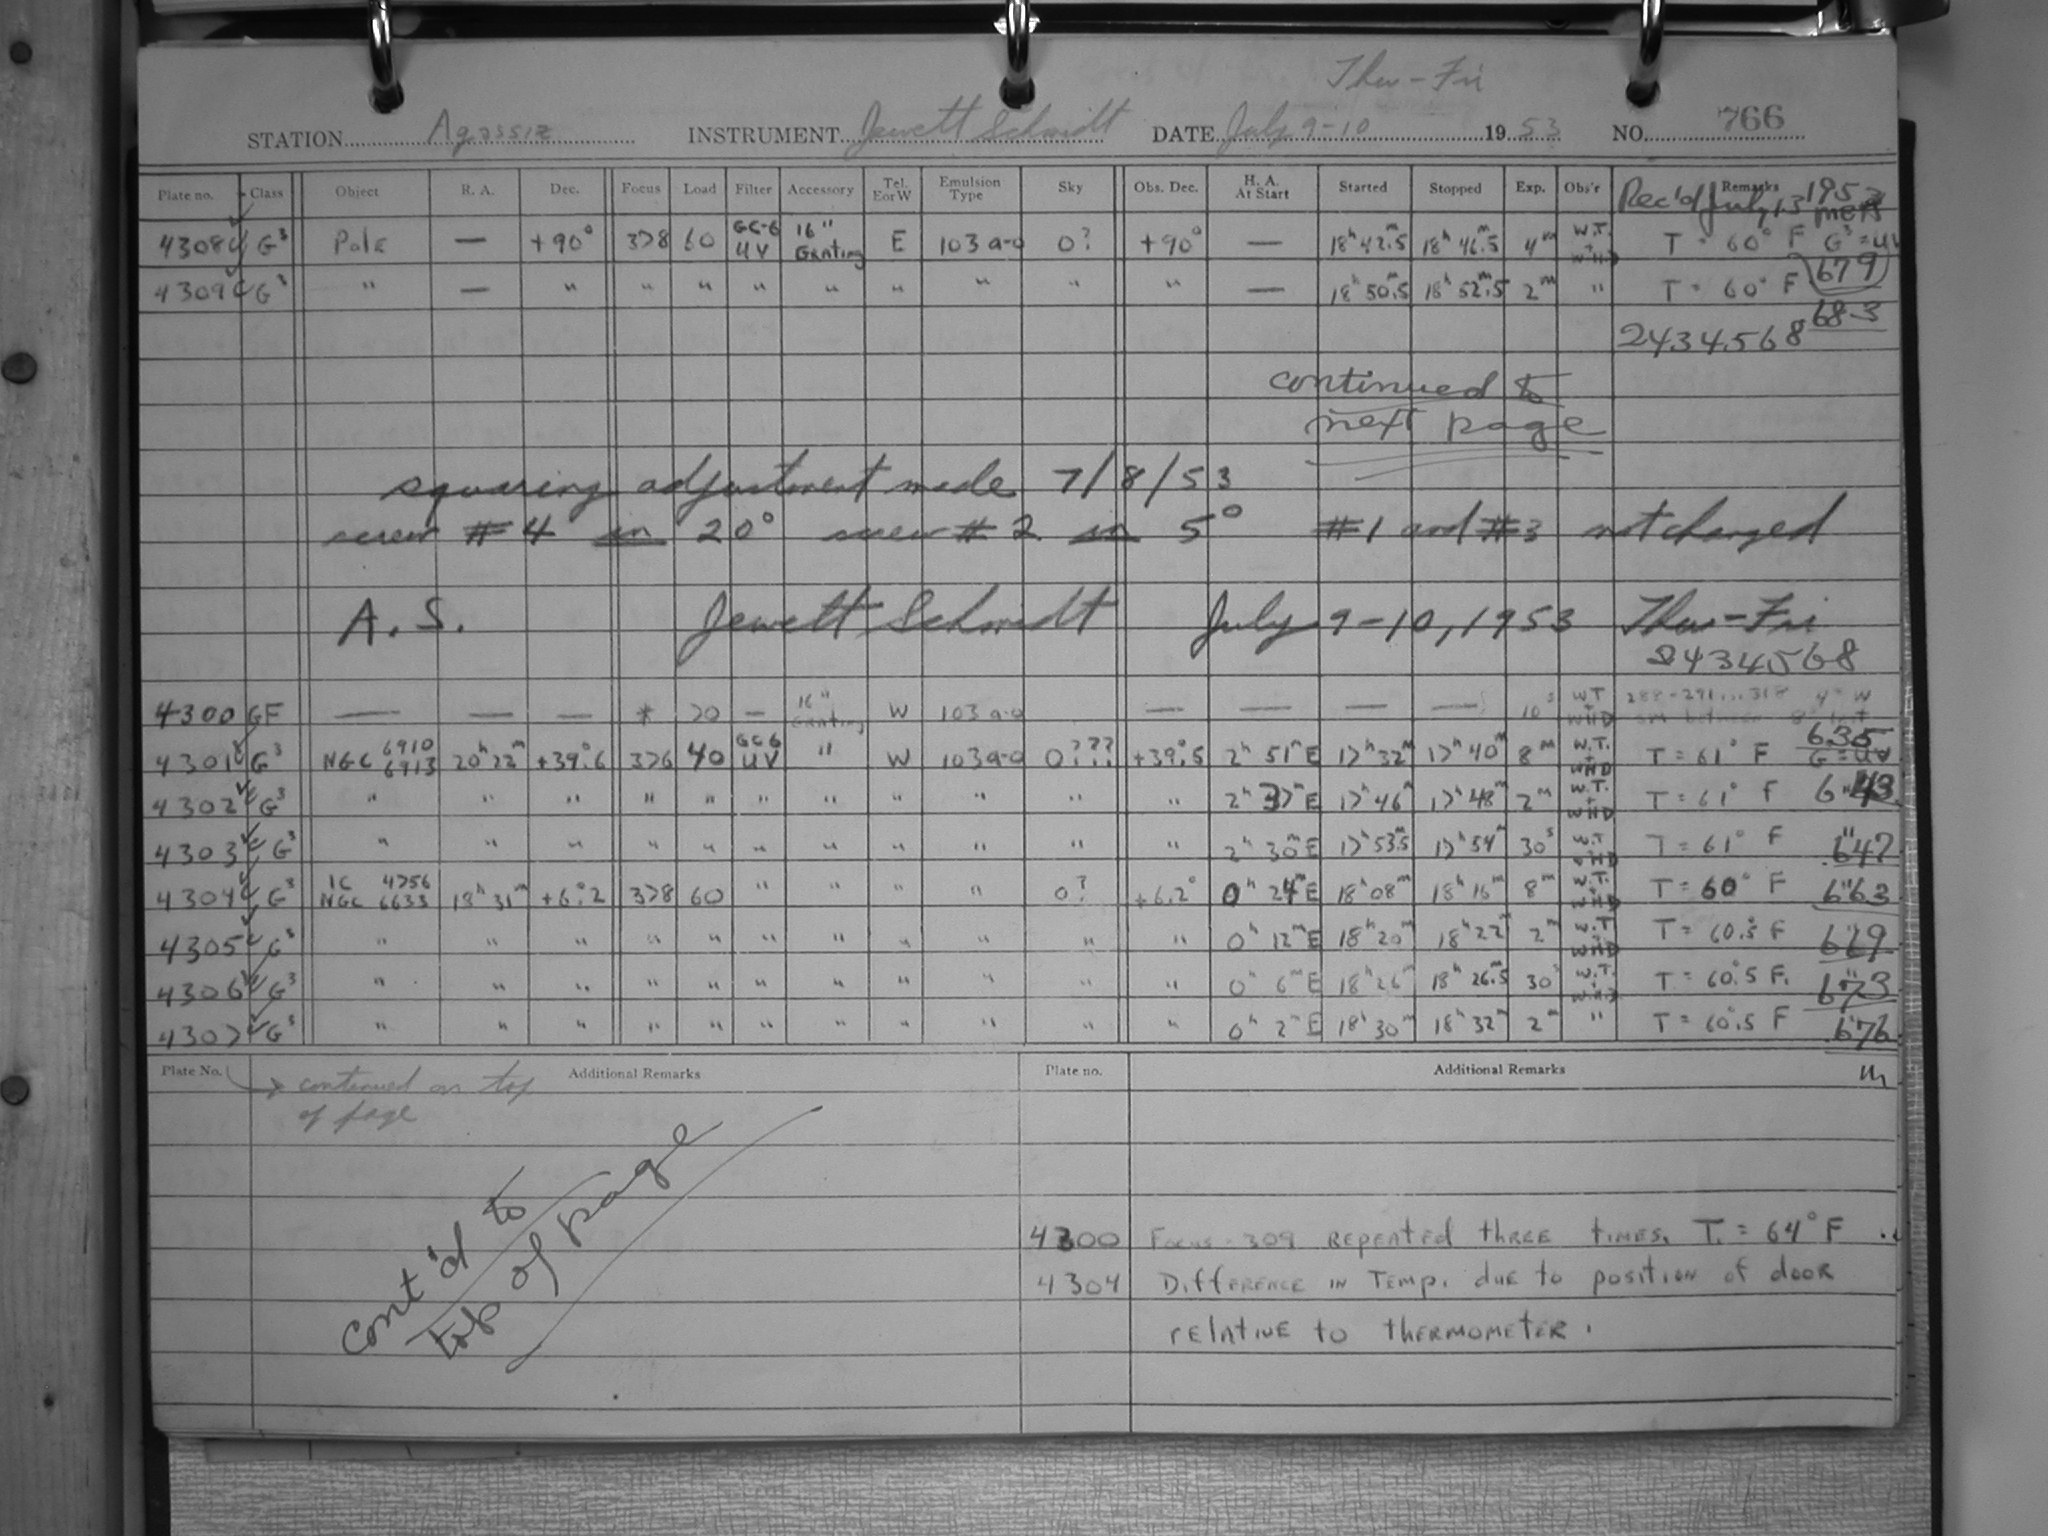 Thu - Fri
STATION Agassiz INSTRUMENT Jewett Schmidt DATE July 9-10 1953 NO. 766
Plate no. Class Object R. A. Dec. Focus Load Filter Accessory Tel. E or W Emulsion Type Sky Obs. Dec. H. A. At Start Started Stopped Exp. Obs'r Remarks
Rec'd July 13 1953
4308 G³ Pole — +90° 378 60 GC-6 UV 16" Grating E 103a-o 0? +90° — 18ʰ 42ᵐ.5 18ʰ 46ᵐ.5 4ᵐ W.T. + WHD T = 60° F G³ = UV 679
4309 G³ " — " " " " " " " " " — 18ʰ 50ᵐ.5 18ʰ 52ᵐ.5 2ᵐ " T = 60° F 683
2434568
continued to
next page
squaring adjustment made 7/8/53
screw #4 in 20° screw #2 in 5° #1 and #3 not changed
A. S. Jewett Schmidt July 9-10, 1953 Thu-Fri
2434568
4300 GF — — — * 20 — 16" Grating W 103a-o — — — — 10ˢ W.T + WHD 288-291...318 4" W
4301 G³ NGC 6910 6913 20ʰ 22ᵐ +39°.6 376 40 GC6 UV " W 103a-o 0??? +39°.5 2ʰ 51ᵐ E 17ʰ 32ᵐ 17ʰ 40ᵐ 8ᵐ W.T. + WHD T = 61° F 635 G³ = UV
4302 G³ " " " " " " " " " " " 2ʰ 37ᵐ E 17ʰ 46ᵐ 17ʰ 48ᵐ 2ᵐ W.T. + WHD T = 61° F 643
4303 G³ " " " " " " " " " " " 2ʰ 30ᵐ E 17ʰ 53ᵐ.5 17ʰ 54ᵐ 30ˢ W.T + WHD T = 61° F 647
4304 G³ IC 4756 NGC 6633 18ʰ 31ᵐ +6°.2 378 60 " " " " 0? +6.2° 0ʰ 24ᵐ E 18ʰ 08ᵐ 18ʰ 16ᵐ 8ᵐ W.T. + WHD T = 60° F 663
4305 G³ " " " " " " " " " " " 0ʰ 12ᵐ E 18ʰ 20ᵐ 18ʰ 22ᵐ 2ᵐ W.T + WHD T = 60.5 F 669
4306 G³ " " " " " " " " " " " 0ʰ 6ᵐ E 18ʰ 26ᵐ 18ʰ 26.5ᵐ 30ˢ W.T. + WHD T = 60°.5 F. 673
4307 G³ " " " " " " " " " " " 0ʰ 2ᵐ E 18ʰ 30ᵐ 18ʰ 32ᵐ 2ᵐ " T = 60°.5 F 676
Plate No. Additional Remarks Plate no. Additional Remarks
→ continued on top
of page
cont'd to
top of page
4300 Focus - 309 repeated three times. T. = 64° F
4304 Difference in Temp. due to position of door
relative to thermometer.